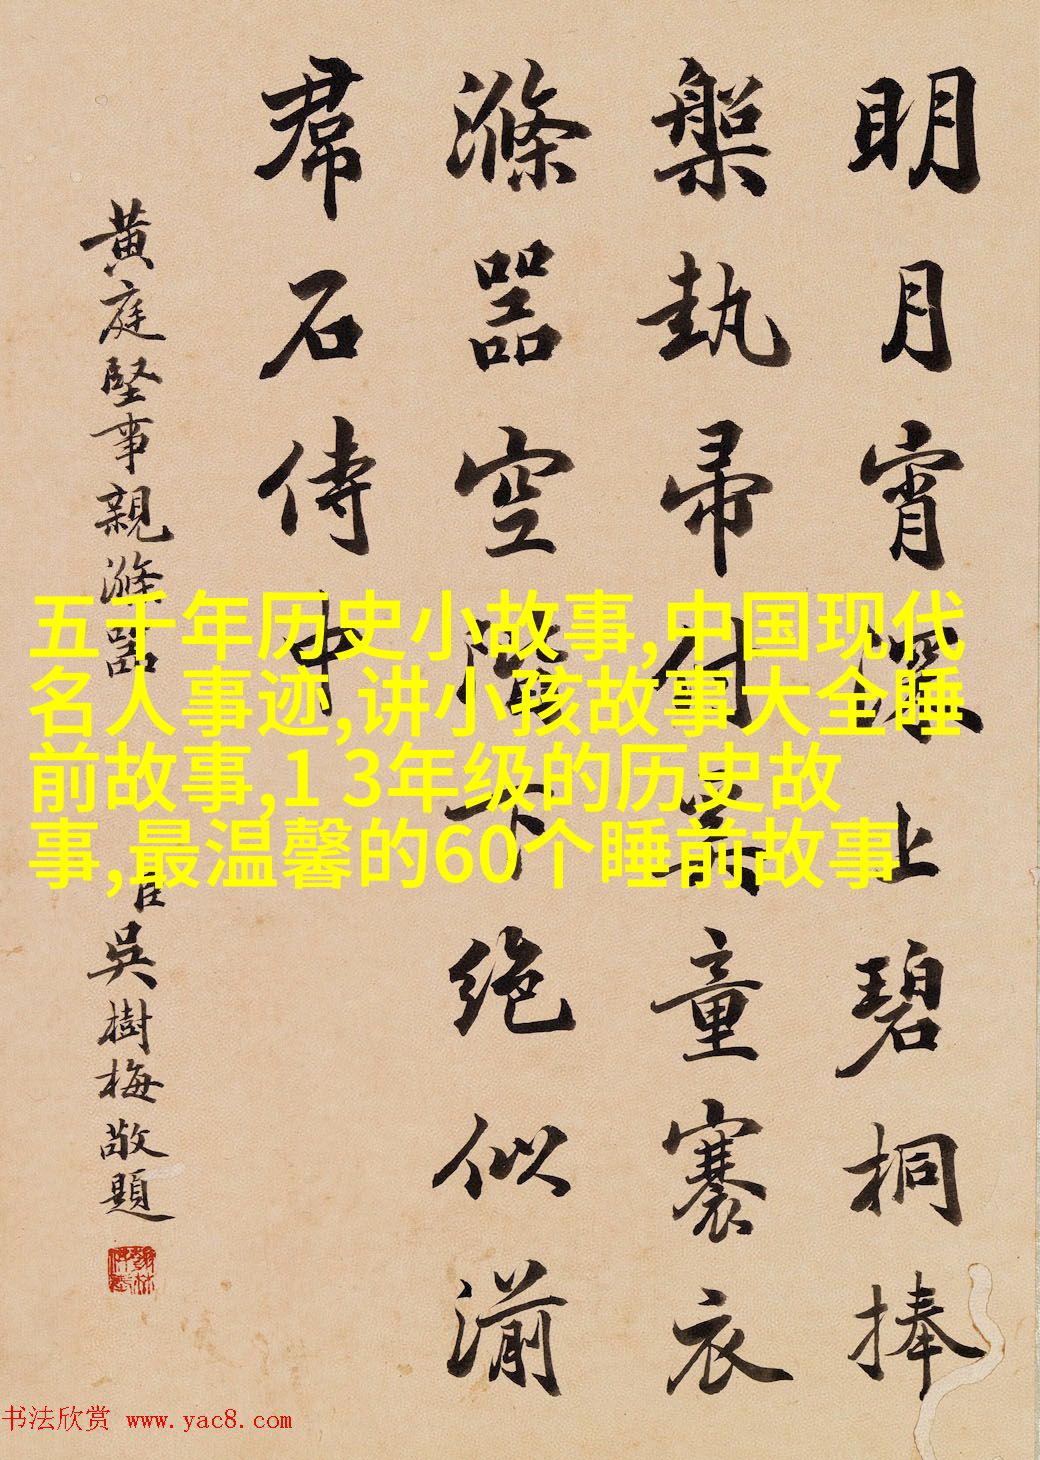 明月宵深上碧桐捧
槃執帚付奚童褰衣
滌器空階下絕似湔
帬石侍中
黃庭堅事親滌器
吳樹梅敬題
五千年历史小故事,中国现代
名人事迹,讲小孩故事大全睡
前故事,1 3年级的历史故
事,最温馨的60个睡前故事
书法欣赏 www.yac8.com